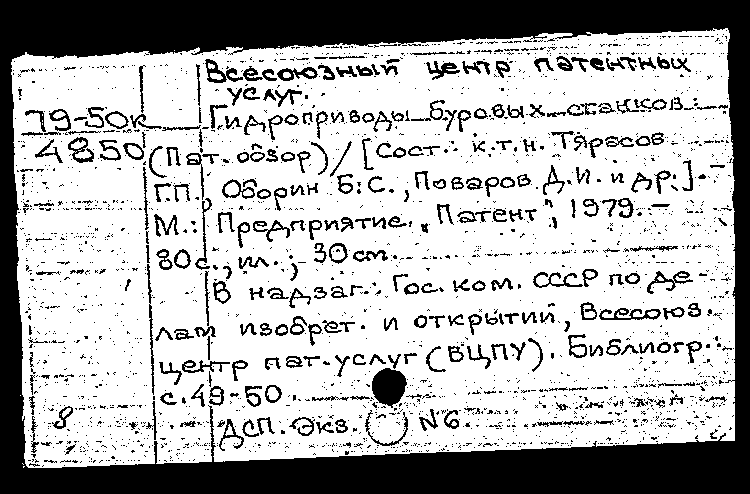 Всесоюзный центр патентных
услуг.
79-50к Гидроприводы буровых станков:
4850 (Пат. обзор) / [Сост.: к.т.н. Тарасов
Г.П., Оборин Б.С., Поваров Д.И. и др.]. –
М.: Предприятие „Патент", 1979. –
80 с., ил.; 30 см.
В надзаг.: Гос. ком. СССР по де-
лам изобрет. и открытий, Всесоюз.
центр пат. услуг (ВЦПУ). Библиогр.:
с. 49-50
8 ДСП. Экз. N 6.